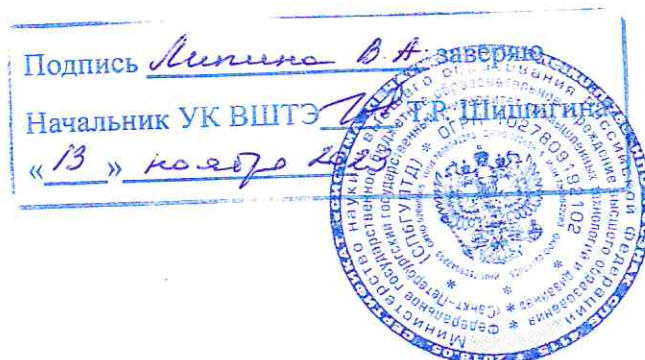 Подпись Липина В.А. заверяю
Начальник УК ВШТЭ Т.Р. Шишигина
«13» ноября 2023
Министерство науки и высшего образования Российской Федерации
Федеральное государственное бюджетное образовательное учреждение высшего образования
Санкт-Петербургский государственный университет промышленных технологий и дизайна
(СПбГУПТД) * ОГРН 1027809192102